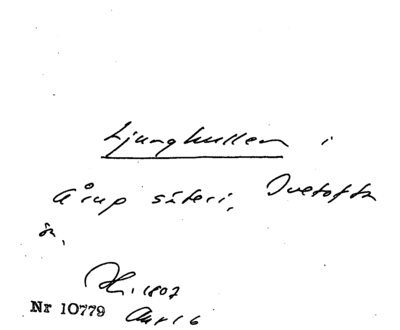 Ljungkullen i
Årup säteri, Ivetofta
sn.
1807
Nr 10779 Akt 16